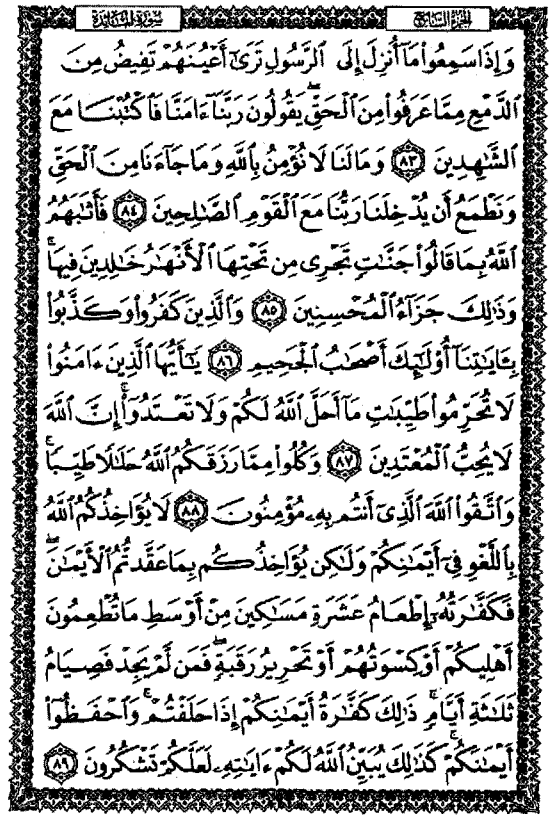 الجزء السابع
سورة المائدة
وَإِذَا سَمِعُوا۟ مَآ أُنزِلَ إِلَى ٱلرَّسُولِ تَرَىٰٓ أَعْيُنَهُمْ تَفِيضُ مِنَ
ٱلدَّمْعِ مِمَّا عَرَفُوا۟ مِنَ ٱلْحَقِّ ۖ يَقُولُونَ رَبَّنَآ ءَامَنَّا فَٱكْتُبْنَا مَعَ
ٱلشَّـٰهِدِينَ ٨٣ وَمَا لَنَا لَا نُؤْمِنُ بِٱللَّهِ وَمَا جَآءَنَا مِنَ ٱلْحَقِّ
وَنَطْمَعُ أَن يُدْخِلَنَا رَبُّنَا مَعَ ٱلْقَوْمِ ٱلصَّـٰلِحِينَ ٨٤ فَأَثَـٰبَهُمُ
ٱللَّهُ بِمَا قَالُوا۟ جَنَّـٰتٍ تَجْرِى مِن تَحْتِهَا ٱلْأَنْهَـٰرُ خَـٰلِدِينَ فِيهَا ۚ
وَذَٰلِكَ جَزَآءُ ٱلْمُحْسِنِينَ ٨٥ وَٱلَّذِينَ كَفَرُوا۟ وَكَذَّبُوا۟
بِـَٔايَـٰتِنَآ أُو۟لَـٰٓئِكَ أَصْحَـٰبُ ٱلْجَحِيمِ ٨٦ يَـٰٓأَيُّهَا ٱلَّذِينَ ءَامَنُوا۟
لَا تُحَرِّمُوا۟ طَيِّبَـٰتِ مَآ أَحَلَّ ٱللَّهُ لَكُمْ وَلَا تَعْتَدُوٓا۟ ۚ إِنَّ ٱللَّهَ
لَا يُحِبُّ ٱلْمُعْتَدِينَ ٨٧ وَكُلُوا۟ مِمَّا رَزَقَكُمُ ٱللَّهُ حَلَـٰلًا طَيِّبًا ۚ
وَٱتَّقُوا۟ ٱللَّهَ ٱلَّذِىٓ أَنتُم بِهِۦ مُؤْمِنُونَ ٨٨ لَا يُؤَاخِذُكُمُ ٱللَّهُ
بِٱللَّغْوِ فِىٓ أَيْمَـٰنِكُمْ وَلَـٰكِن يُؤَاخِذُكُم بِمَا عَقَّدتُّمُ ٱلْأَيْمَـٰنَ ۖ
فَكَفَّـٰرَتُهُۥٓ إِطْعَامُ عَشَرَةِ مَسَـٰكِينَ مِنْ أَوْسَطِ مَا تُطْعِمُونَ
أَهْلِيكُمْ أَوْ كِسْوَتُهُمْ أَوْ تَحْرِيرُ رَقَبَةٍ ۖ فَمَن لَّمْ يَجِدْ فَصِيَامُ
ثَلَـٰثَةِ أَيَّامٍ ۚ ذَٰلِكَ كَفَّـٰرَةُ أَيْمَـٰنِكُمْ إِذَا حَلَفْتُمْ ۚ وَٱحْفَظُوٓا۟
أَيْمَـٰنَكُمْ ۚ كَذَٰلِكَ يُبَيِّنُ ٱللَّهُ لَكُمْ ءَايَـٰتِهِۦ لَعَلَّكُمْ تَشْكُرُونَ ٨٩